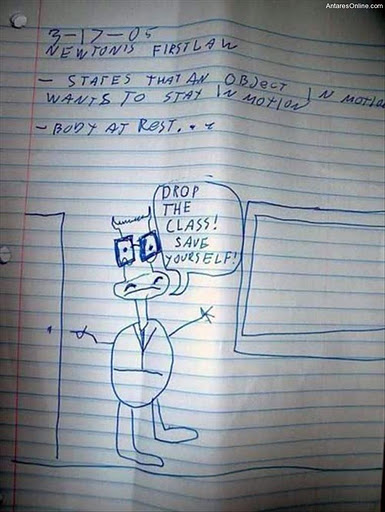 AntaresOnline.com
3-17-05
NEWTONS FIRST LAW
- STATES THAT AN OBJECT IN MOTION
WANTS TO STAY IN MOTION
- BODY AT REST...
DROP
THE
CLASS!
SAVE
YOURSELF!